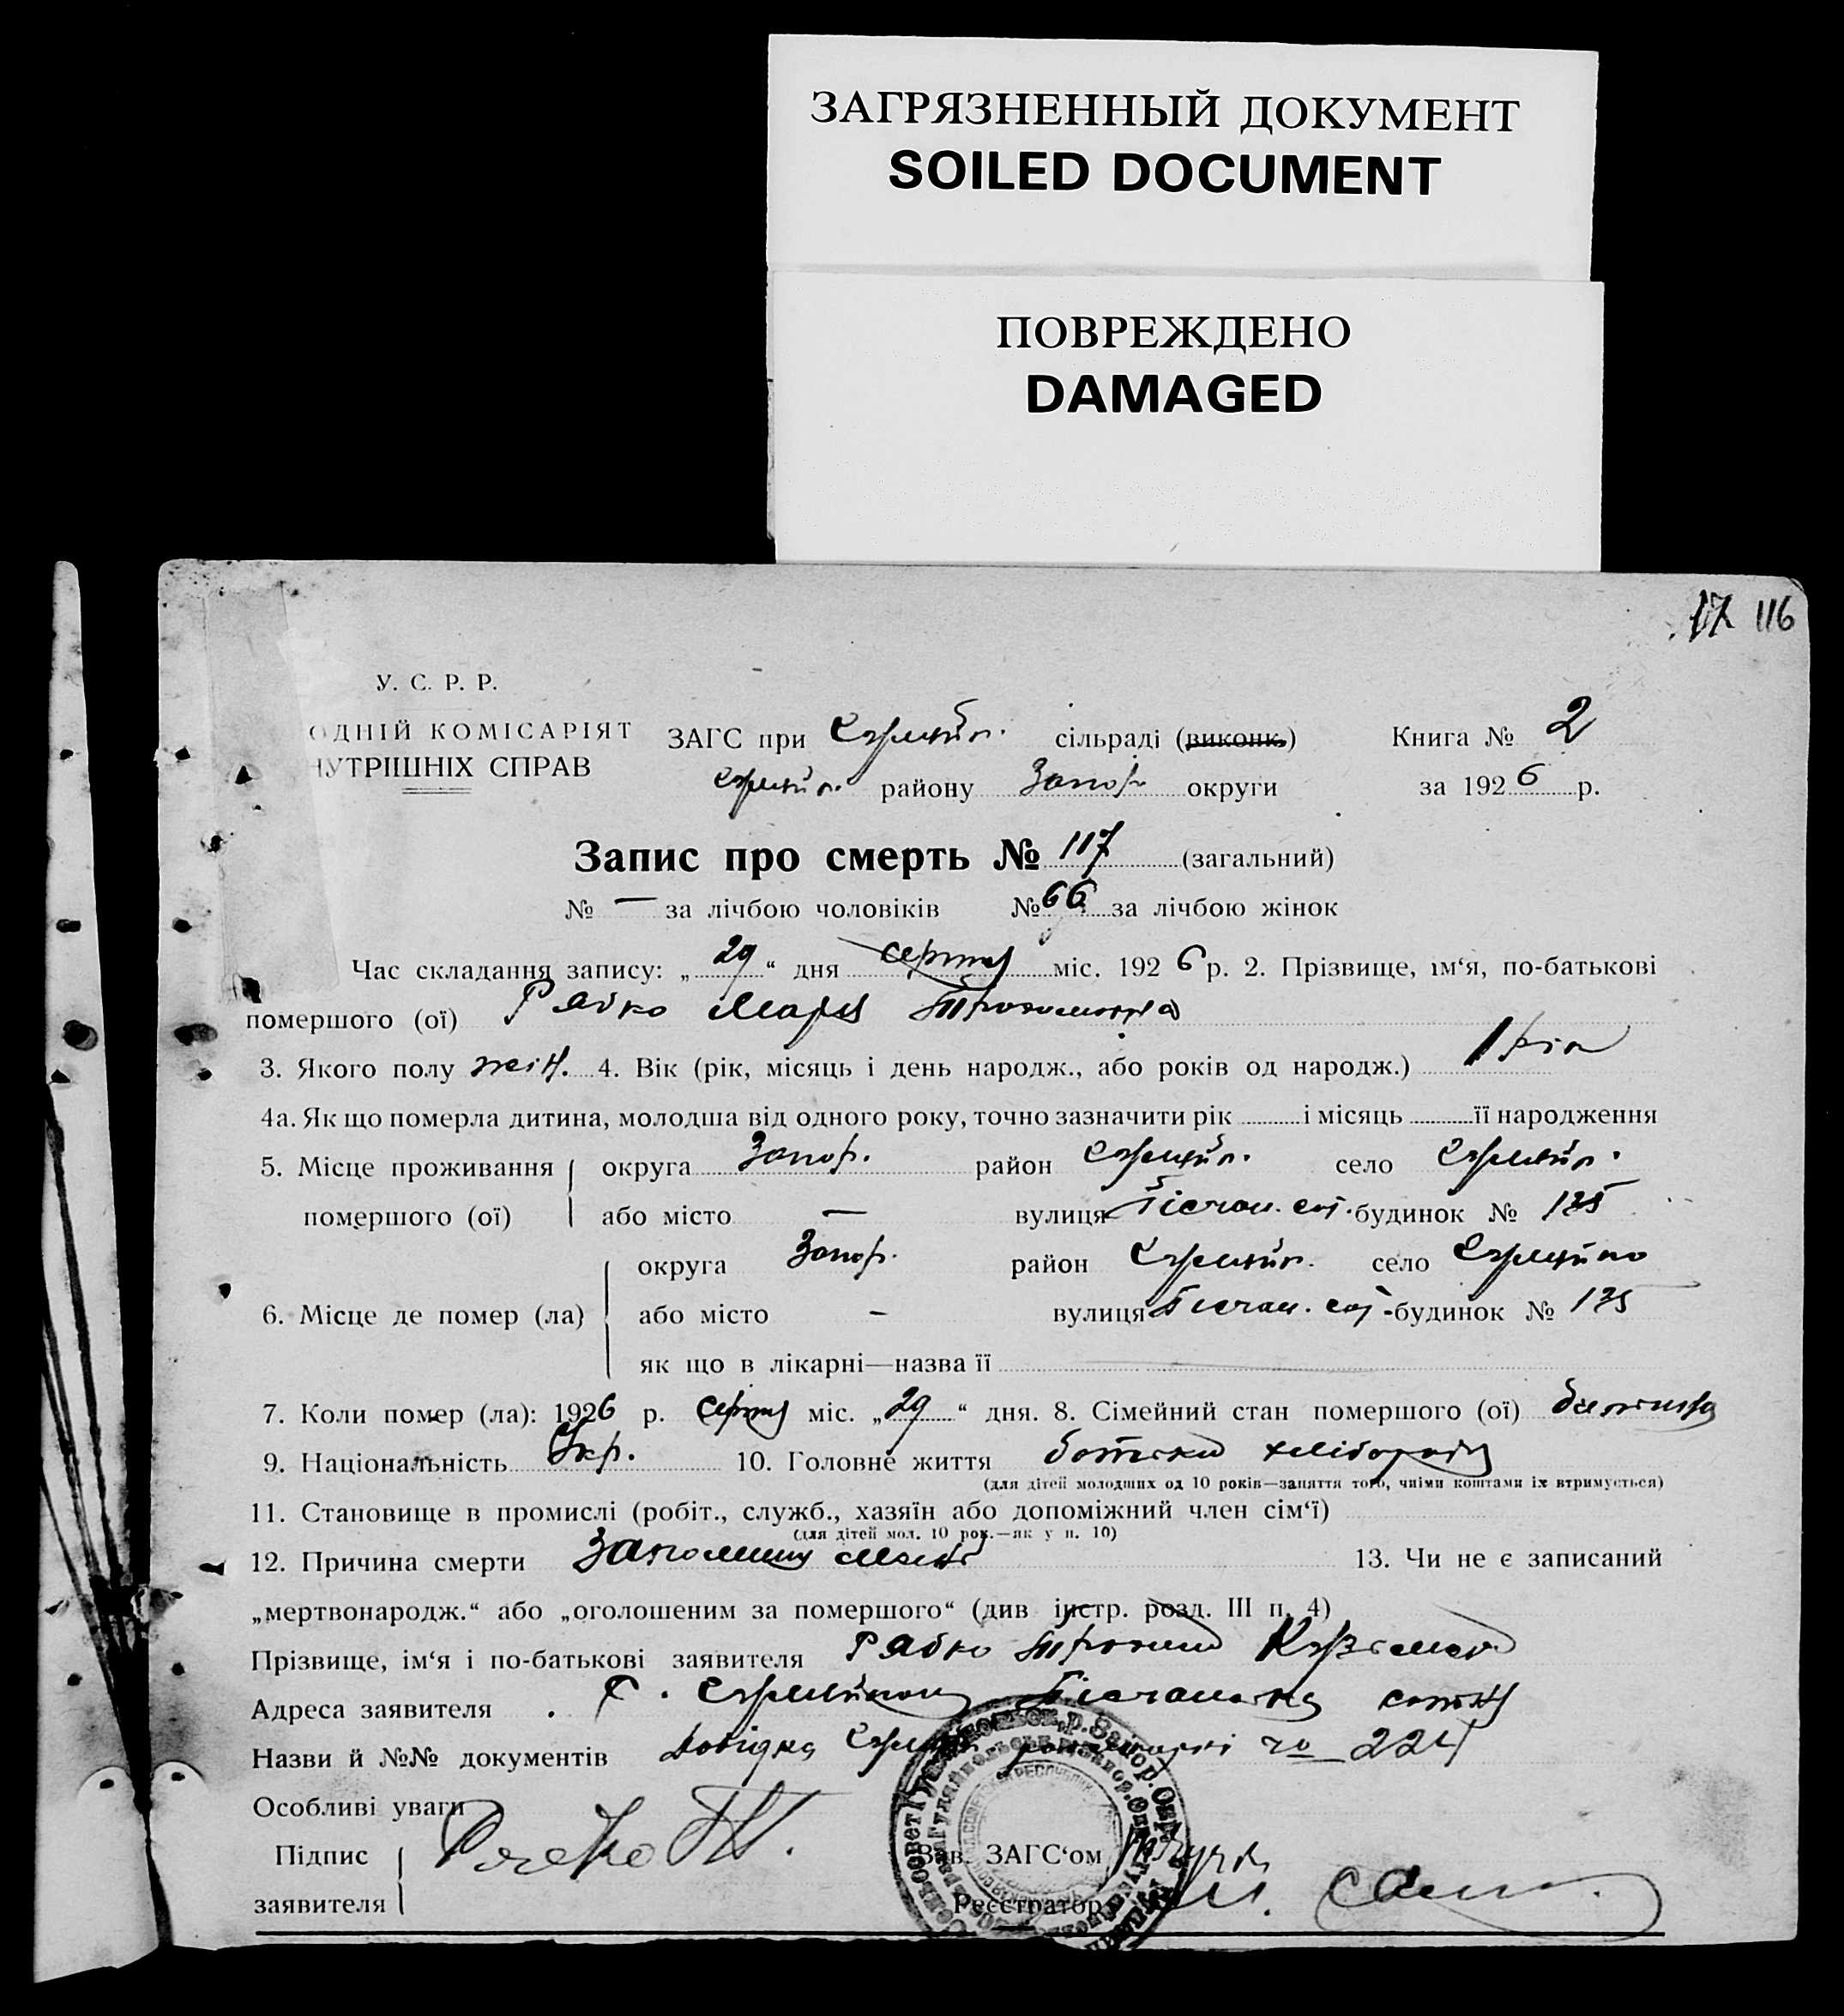 ЗАГРЯЗНЕННЫЙ ДОКУМЕНТ
SOILED DOCUMENT
ПОВРЕЖДЕНО
DAMAGED
17 116
У. С. Р. Р.
ОДНІЙ КОМІСАРІЯТ ЗАГС при сільраді (виконк.) Книга № 2
НУТРІШНІХ СПРАВ району Запор. округи за 1926 р.
Запис про смерть № 117 (загальний)
№ — за лічбою чоловіків № 66 за лічбою жінок
Час складання запису: „29“ дня серпня міс. 1926 р. 2. Прізвище, ім‘я, по-батькові
помершого (ої) Рябко Марія Трохимовна
3. Якого полу жін. 4. Вік (рік, місяць і день народж., або років од народж.) 1 рік
4а. Як що померла дитина, молодша від одного року, точно зазначити рік і місяць її народження
5. Місце проживання округа Запор. район село
помершого (ої) або місто — вулиця Пісчан. сот. будинок № 135
округа Запор. район село
6. Місце де помер (ла) або місто - вулиця Пісчан. сот. будинок № 135
як що в лікарні—назва її
7. Коли помер (ла): 1926 р. серпня міс. „29“ дня. 8. Сімейний стан помершого (ої)
9. Національність Укр. 10. Головне життя батьки хлібороби
(для дітей молодших од 10 років—заняття того, чиїми коштами їх втримується)
11. Становище в промислі (робіт., служб., хазяїн або допоміжний член сім‘ї)
(для дітей мол. 10 рок.—як у п. 10)
12. Причина смерти 13. Чи не є записаний
„мертвонародж.“ або „оголошеним за помершого“ (див інстр. розд. III п. 4)
Прізвище, ім‘я і по-батькові заявителя Рябко Трохим Кузьмов
Адреса заявителя С. Пісчанска сотня
Назви й №№ документів Довідка № 224
Особливі уваги
Підпис Рябко Зав. ЗАГС‘ом
заявителя Реєстратор